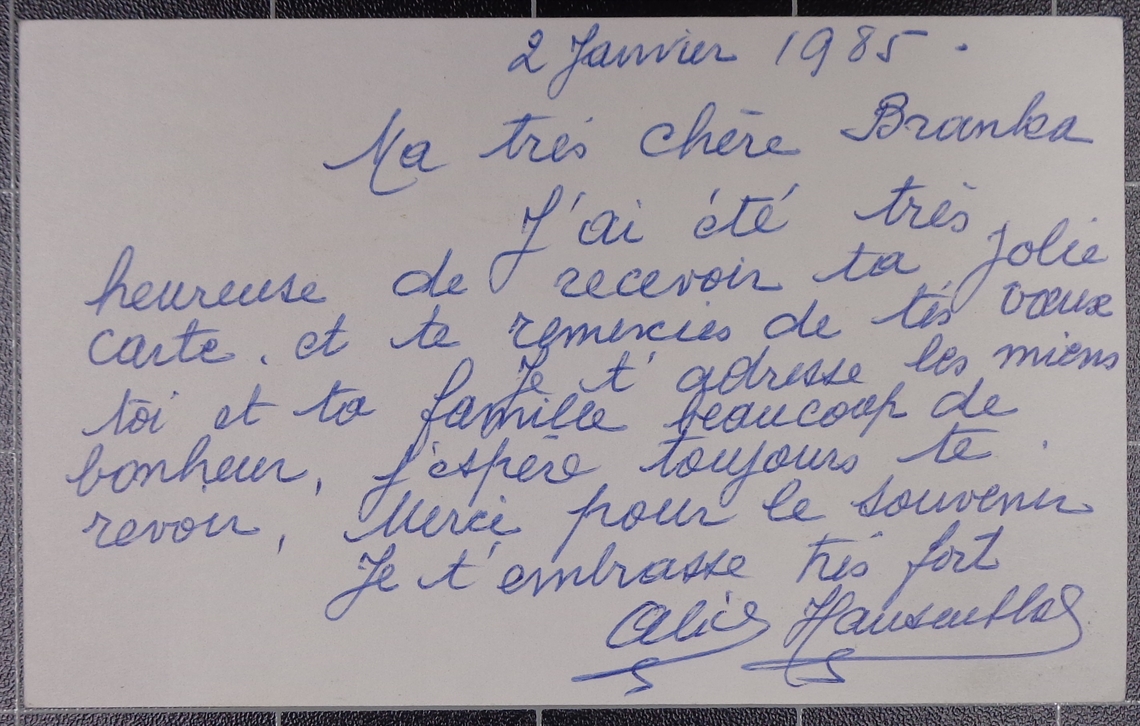 2 Janvier 1985.
Ma très chère Branka
J'ai été très
heureuse de recevoir ta jolie
carte. et te remercies de tés vœux
Je t'adresse les miens
toi et ta famille beaucoup de
bonheur, j'espère toujours te
revoir, Merci pour le souvenir
Je t'embrasse très fort
Alice